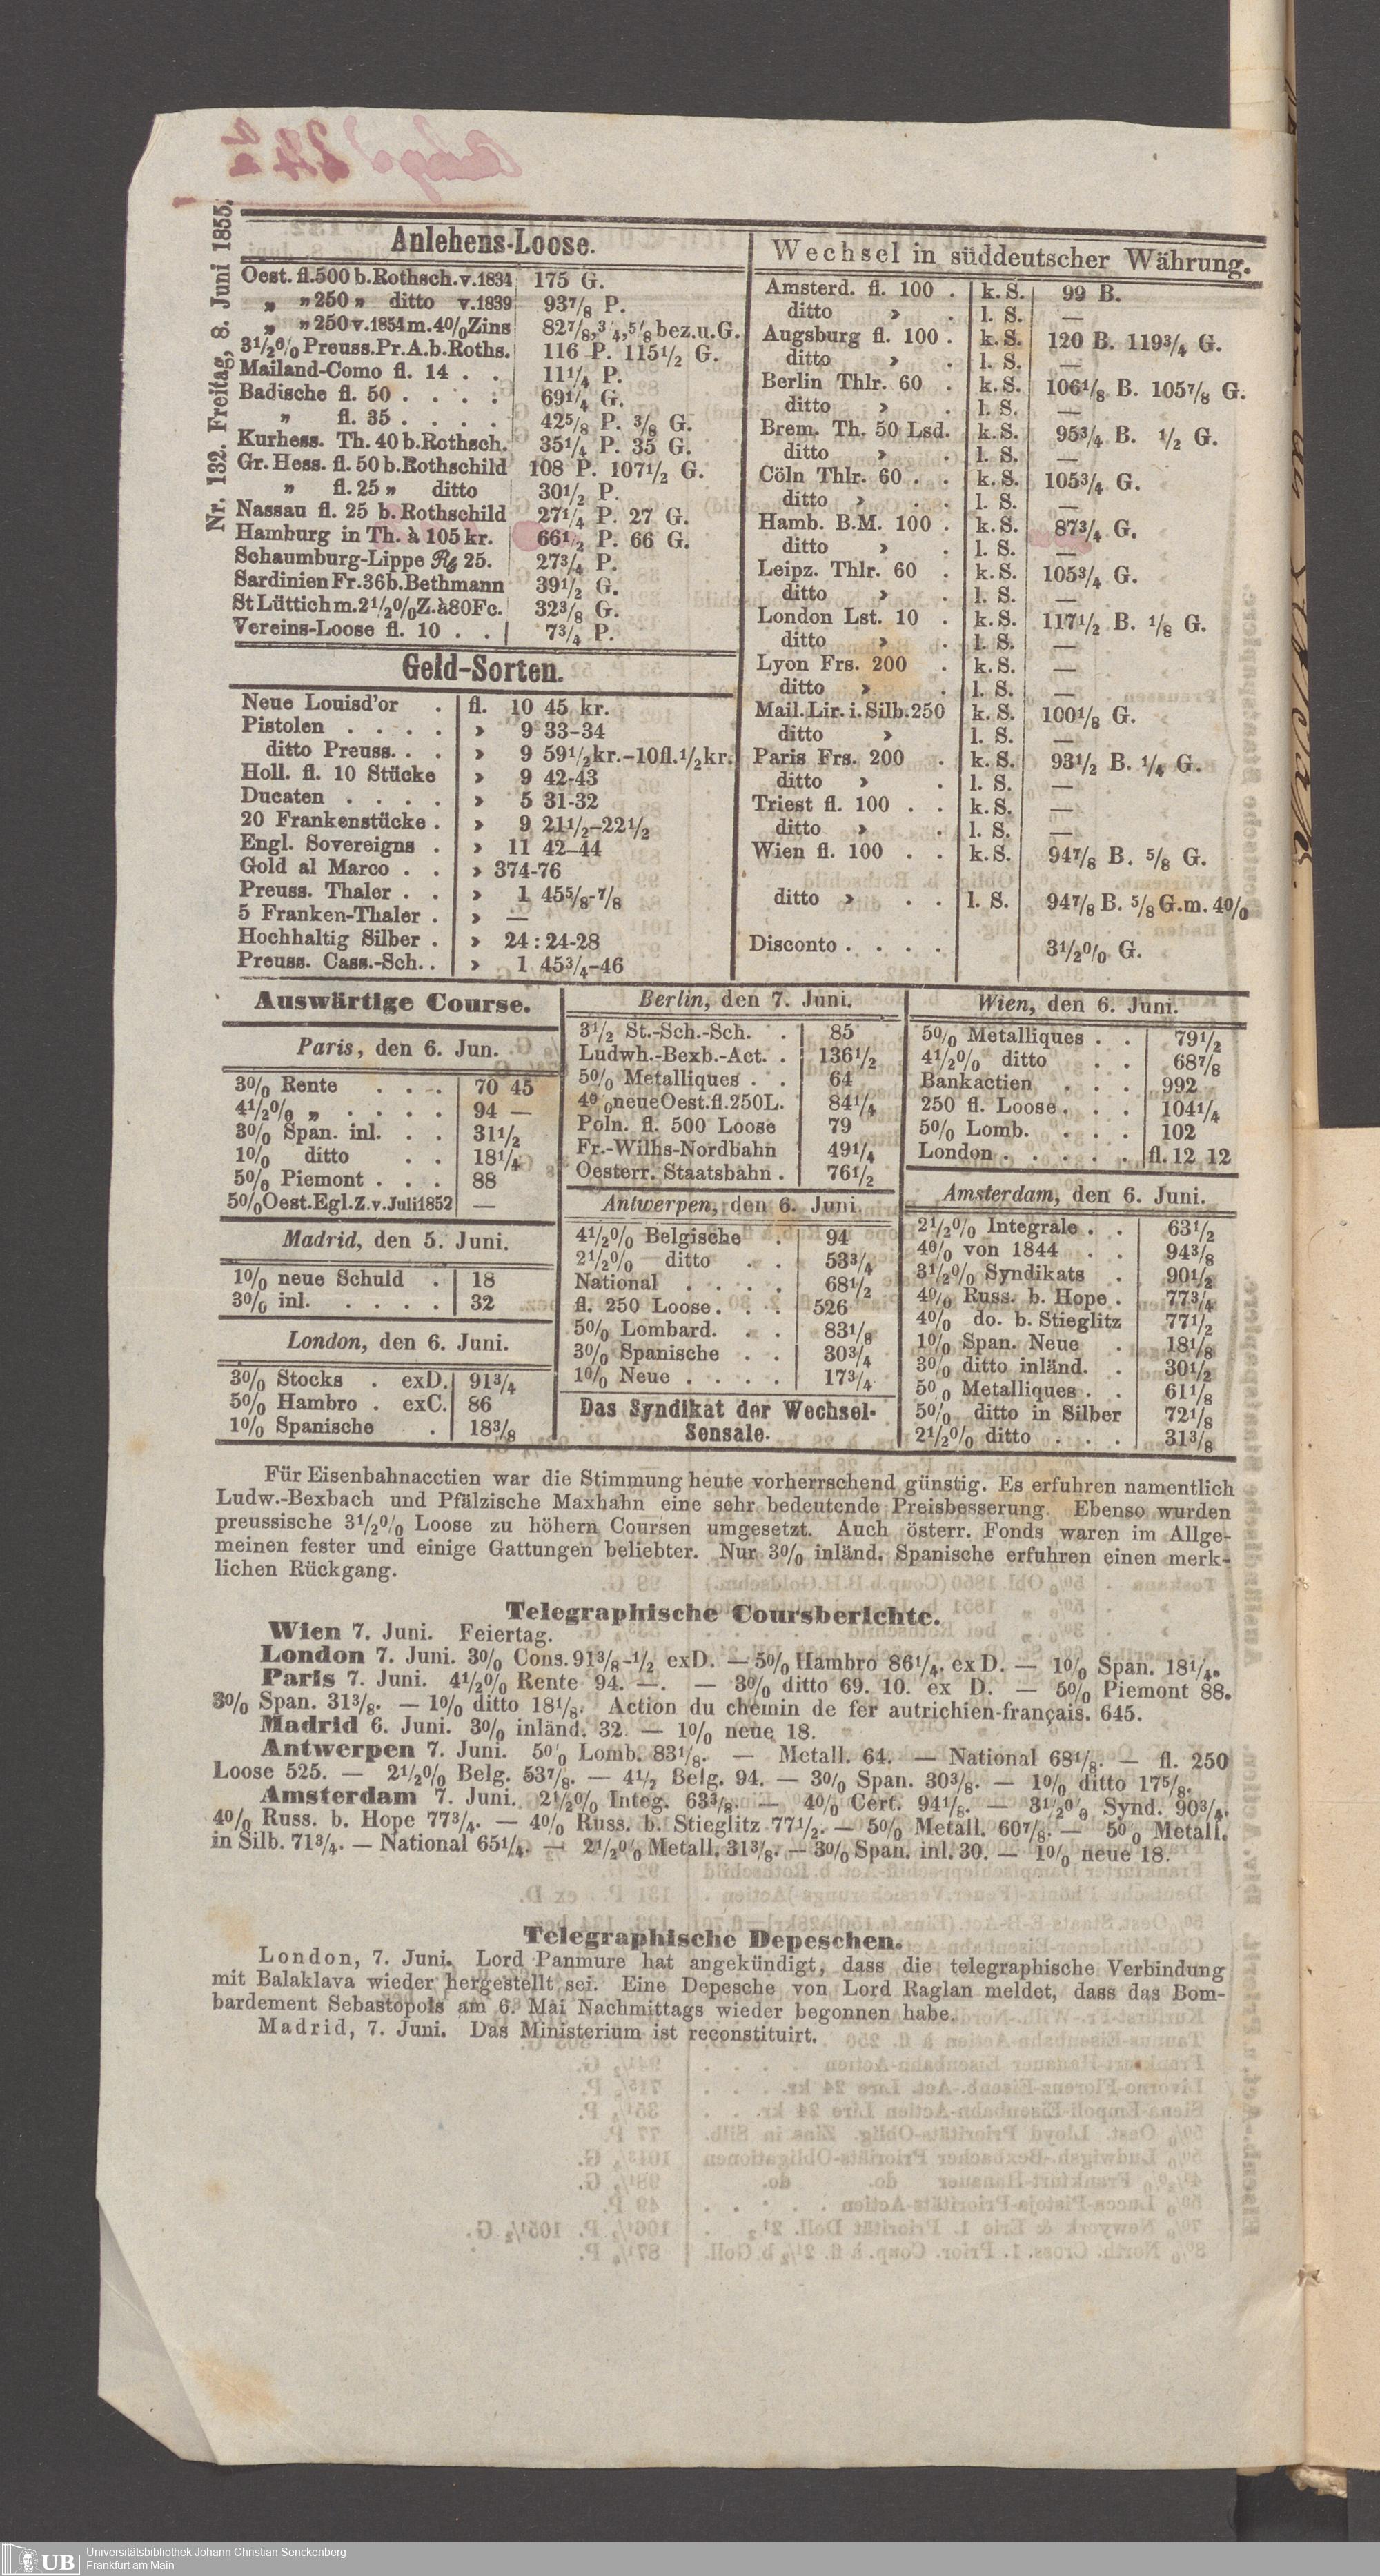 Nr. 132. Freitag, 8. Juni 1855.
Anlehens-Loose.
Oest. fl.500 b.Rothsch.v.1834 175 G.
„ „ 250 „ ditto v.1839 93 7/8 P.
„ „ 250 v.1854 m. 4% Zins 82 7/8, 3/4, 5/8 bez.u.G.
3 1/2 % Preuss.Pr.A.b.Roths. 116 P. 115 1/2 G.
Mailand-Como fl. 14 . . 11 1/4 P.
Badische fl. 50 . . . . 69 1/4 G.
„ fl. 35 . . . . 42 5/8 P. 3/8 G.
Kurhess. Th. 40 b.Rothsch. 35 1/4 P. 35 G.
Gr. Hess. fl. 50 b.Rothschild 108 P. 107 1/2 G.
„ fl. 25 „ ditto 30 1/2 P.
Nassau fl. 25 b. Rothschild 27 1/4 P. 27 G.
Hamburg in Th. à 105 kr. 66 1/2 P. 66 G.
Schaumburg-Lippe 25. 27 3/4 P.
Sardinien Fr.36 b.Bethmann 39 1/2 G.
St Lüttich m. 2 1/2 % Z. à 80 Fc. 32 3/8 G.
Vereins-Loose fl. 10 . . 7 3/4 P.
Geld-Sorten.
Neue Louisd'or . fl. 10 45 kr.
Pistolen . . . . » 9 33-34
ditto Preuss. . . » 9 59 1/2 kr.-10fl. 1/2 kr.
Holl. fl. 10 Stücke » 9 42-43
Ducaten . . . . » 5 31-32
20 Frankenstücke . » 9 21 1/2-22 1/2
Engl. Sovereigns . » 11 42-44
Gold al Marco . . » 374-76
Preuss. Thaler . . » 1 45 5/8-7/8
5 Franken-Thaler . » —
Hochhaltig Silber . » 24 : 24-28
Preuss. Cass.-Sch. . » 1 45 3/4-46
Wechsel in süddeutscher Währung.
Amsterd. fl. 100 . k. S. 99 B.
ditto » . l. S. —
Augsburg fl. 100 . k. S. 120 B. 119 3/4 G.
ditto » . l. S. —
Berlin Thlr. 60 . k. S. 106 1/8 B. 105 7/8 G.
ditto » . l. S. —
Brem. Th. 50 Lsd. k. S. 95 3/4 B. 1/2 G.
ditto » . l. S. —
Cöln Thlr. 60 . . k. S. 105 3/4 G.
ditto » . . l. S. —
Hamb. B.M. 100 . k. S. 87 3/4 G.
ditto » . l. S. —
Leipz. Thlr. 60 . k. S. 105 3/4 G.
ditto » . l. S. —
London Lst. 10 . k. S. 117 1/2 B. 1/8 G.
ditto » . l. S. —
Lyon Frs. 200 . k. S. —
ditto » . l. S. —
Mail. Lir. i. Silb. 250 k. S. 100 1/8 G.
ditto » l. S. —
Paris Frs. 200 . k. S. 93 1/2 B. 1/4 G.
ditto » . l. S. —
Triest fl. 100 . . k. S. —
ditto » . l. S. —
Wien fl. 100 . . k. S. 94 7/8 B. 5/8 G.
ditto » . . l. S. 94 7/8 B. 5/8 G.m. 4%
Disconto . . . . 3 1/2 % G.
Auswärtige Course.
Paris, den 6. Jun.
3% Rente . . . 70 45
4 1/2 % „ . . . . 94 —
3% Span. inl. . . 31 1/2
1% ditto . . 18 1/4
5% Piemont . . . 88
5% Oest.Egl.Z.v.Juli1852 —
Madrid, den 5. Juni.
1% neue Schuld . 18
3% inl. . . . . 32
London, den 6. Juni.
3% Stocks . exD. 91 3/4
5% Hambro . exC. 86
1% Spanische . 18 3/8
Berlin, den 7. Juni.
3 1/2 St.-Sch.-Sch. . 85
Ludwh.-Bexb.-Act. . 136 1/2
5% Metalliques . . 64
4% neue Oest.fl.250L. 84 1/4
Poln. fl. 500 Loose 79
Fr.-Wilhs-Nordbahn 49 1/4
Oesterr. Staatsbahn . 76 1/2
Antwerpen, den 6. Juni.
4 1/2 % Belgische . 94
2 1/2 % ditto . . 53 3/4
National . . . . 68 1/2
fl. 250 Loose . . . 526
5% Lombard. . . 83 1/8
3% Spanische . . 30 3/4
1% Neue . . . . 17 3/4
Das Syndikat der Wechsel-
Sensale.
Wien, den 6. Juni.
5% Metalliques . . 79 1/2
4 1/2 % ditto . . 68 7/8
Bankactien . . . 992
250 fl. Loose . . . 104 1/4
5% Lomb. . . . 102
London . . . . . fl. 12 12
Amsterdam, den 6. Juni.
2 1/2 % Integrale . . 63 1/2
4% von 1844 . . 94 3/8
3 1/2 % Syndikats . 90 1/2
4% Russ. b. Hope . 77 3/4
4% do. b. Stieglitz 77 1/2
1% Span. Neue . 18 1/8
3% ditto inländ. . 30 1/2
5% Metalliques . . 61 1/8
5% ditto in Silber 72 1/8
2 1/2 % ditto . . . 31 3/8
Für Eisenbahnacctien war die Stimmung heute vorherrschend günstig. Es erfuhren namentlich
Ludw.-Bexbach und Pfälzische Maxhahn eine sehr bedeutende Preisbesserung. Ebenso wurden
preussische 3 1/2 % Loose zu höhern Coursen umgesetzt. Auch österr. Fonds waren im Allge-
meinen fester und einige Gattungen beliebter. Nur 3% inländ. Spanische erfuhren einen merk-
lichen Rückgang.
Telegraphische Coursberichte.
Wien 7. Juni. Feiertag.
London 7. Juni. 3% Cons. 91 3/8-1/2 exD. — 5% Hambro 86 1/4. ex D. — 1% Span. 18 1/4.
Paris 7. Juni. 4 1/2 % Rente 94. —. — 3% ditto 69. 10. ex D. — 5% Piemont 88.
3% Span. 31 3/8. — 1% ditto 18 1/8. Action du chemin de fer autrichien-français. 645.
Madrid 6. Juni. 3% inländ. 32. — 1% neue 18.
Antwerpen 7. Juni. 5% Lomb. 83 1/8. — Metall. 64. — National 68 1/8. — fl. 250
Loose 525. — 2 1/2 % Belg. 53 7/8. — 4 1/2 Belg. 94. — 3% Span. 30 3/8. — 1% ditto 17 5/8.
Amsterdam 7. Juni. 2 1/2 % Integ. 63 3/8. — 4% Cert. 94 1/8. — 3 1/2 % Synd. 90 3/4.
4% Russ. b. Hope 77 3/4. — 4% Russ. b. Stieglitz 77 1/2. — 5% Metall. 60 7/8. — 5% Metall.
in Silb. 71 3/4. — National 65 1/4. — 2 1/2 % Metall. 31 3/8. — 3% Span. inl. 30. — 1% neue 18.
Telegraphische Depeschen.
London, 7. Juni. Lord Panmure hat angekündigt, dass die telegraphische Verbindung
mit Balaklava wieder hergestellt sei. Eine Depesche von Lord Raglan meldet, dass das Bom-
bardement Sebastopols am 6. Mai Nachmittags wieder begonnen habe.
Madrid, 7. Juni. Das Ministerium ist reconstituirt.
UB
Universitätsbibliothek Johann Christian Senckenberg
Frankfurt am Main